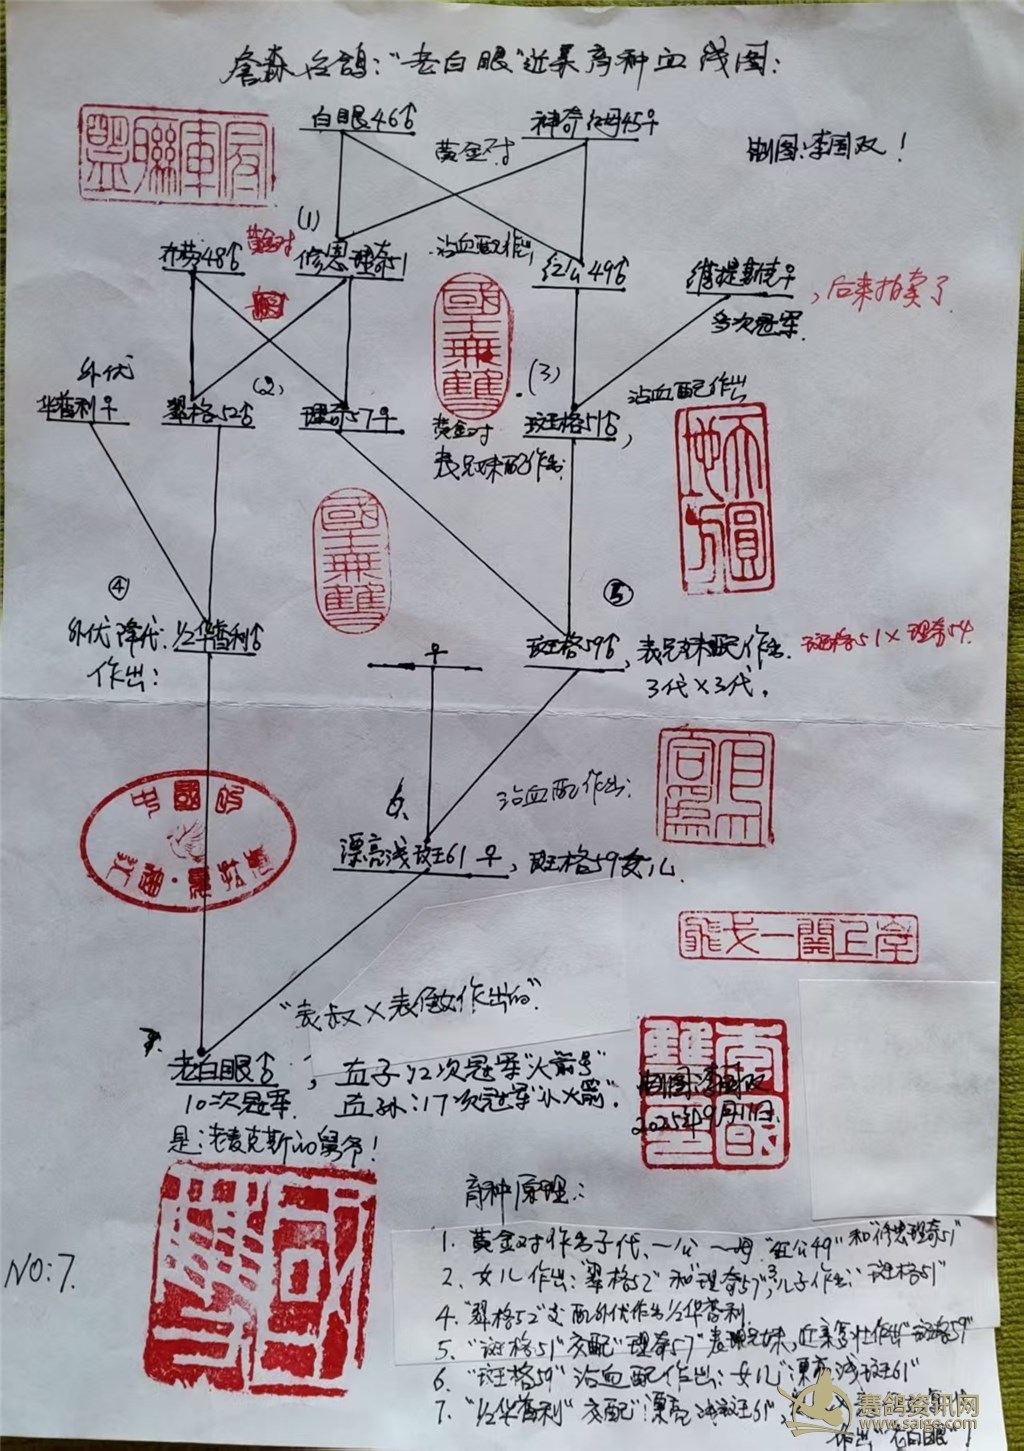 詹森名鸽:“老白眼”近亲育种血线图:
白眼46♂
神奇红母45♀
黄金对
制图:李国政!
(1)
黄金对
48♂
修恩理奇51
沾血配作出
红公49♂
维提斯克♀,后来拍卖了
多次冠军.
國士無雙
外伏
华普利♀
翠格52♂
(2)
理奇57♀
(3)
黄金对
表兄妹配作出:
斑格51♂,
沾血配作出
天圓地方
國士無雙
④
外伏降代:红华普利♂
作出:
⑤
斑格59♂,表兄妹配作出.
斑格51×理奇57
3代×3代。
♀
6、
沾血配作出:
漂亮浅斑61♀,斑格59女儿.
中國的
“表叔×表侄女作出的”
7.
老白眼♂,直子12次冠军“火箭号”
10次冠军.直孙:17次冠军“小火箭”.
是:老麦克斯的舅爷!
制图:李国政
2025年9月11日.
育种原理:
NO:7.
1. 黄金对作出子代、一公一母“红公49”和“修恩理奇51”
2、女儿作出:“翠格52”和“理奇57”,3儿子作出:“斑格51”
4.“翠格52”交配外伏作出红华普利.
5、“斑格51”交配“理奇57”表兄妹,近亲作出“斑格59”
6、“斑格59”沾血配作出:女儿“漂亮浅斑61”
7、“红华普利”交配“漂亮浅斑61”,
作出“老白眼”!
赛鸽资讯网
www.saige.com